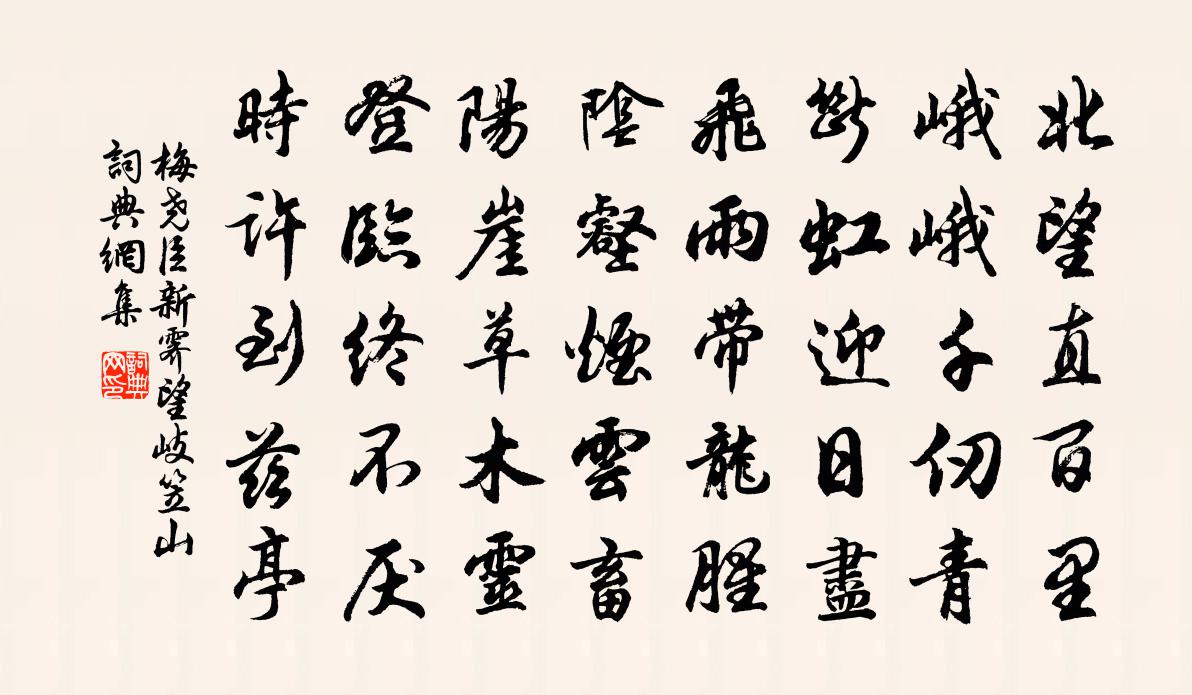 北望直百里
峨峨千仞青
斷虹迎日盡
飛雨帶龍腥
陰壑煙雲畜
陽崖草木靈
登臨終不厌
時許到茲亭
梅堯臣新霽望岐笠山
詞典網集
詞典网印